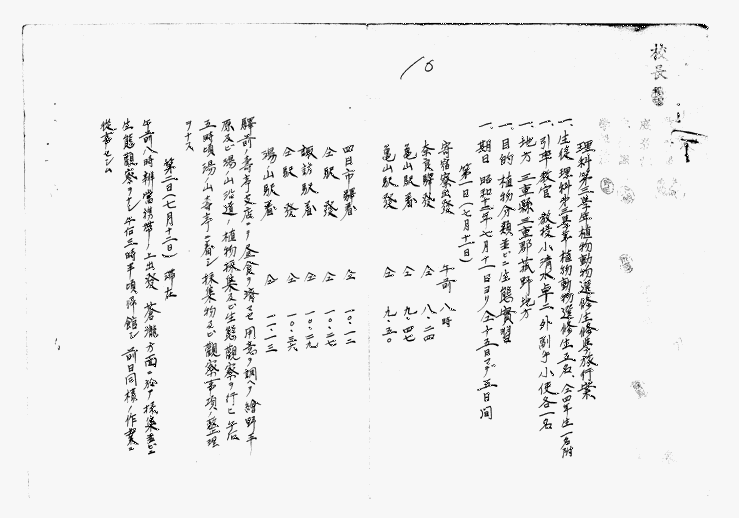 校長
理科第三学年植物動物選修生修学旅行案
一、生徒 理科第三学年植物動物選修生五名、仝四年生一名附
一、引率教官 教授小清水卓二外副手小使各一名
一、地方 三重縣三重郡菰野地方
一、目的 植物分類並ビニ生態實習
一、期日 昭和十二年七月十一日ヨリ仝十五日マデ五日間
第一日(七月十一日)
寄宿寮出發 午前 八時
奈良驛發 仝 八.二四
亀山駅着 仝 九.四七
亀山駅發 仝 九.五〇
四日市驛着 仝 一〇.一二
仝駅發 仝 一〇.二七
諏訪駅着 仝 一〇.二九
仝駅發 仝 一〇.三六
湯ノ山駅着 仝 一一.一三
驛前壽亭支店ニテ昼食ヲ済マセ用意ヲ調ヘテ繪野平
原及ビ湯ノ山沿道ノ植物採集及ビ生態觀察ヲ行ヒ午后
五時頃湯ノ山壽亭ニ着シ採集物及ビ觀察事項ノ整理
ヲナス
第二日(七月十二日) 滞在
午前八時辨當携帶ノ上出發 蒼瀧方面ニ於テ採集並ビニ
生態觀察ヲナシ午后三時半頃帰館シ前日同様ノ作業ニ
從事セシム